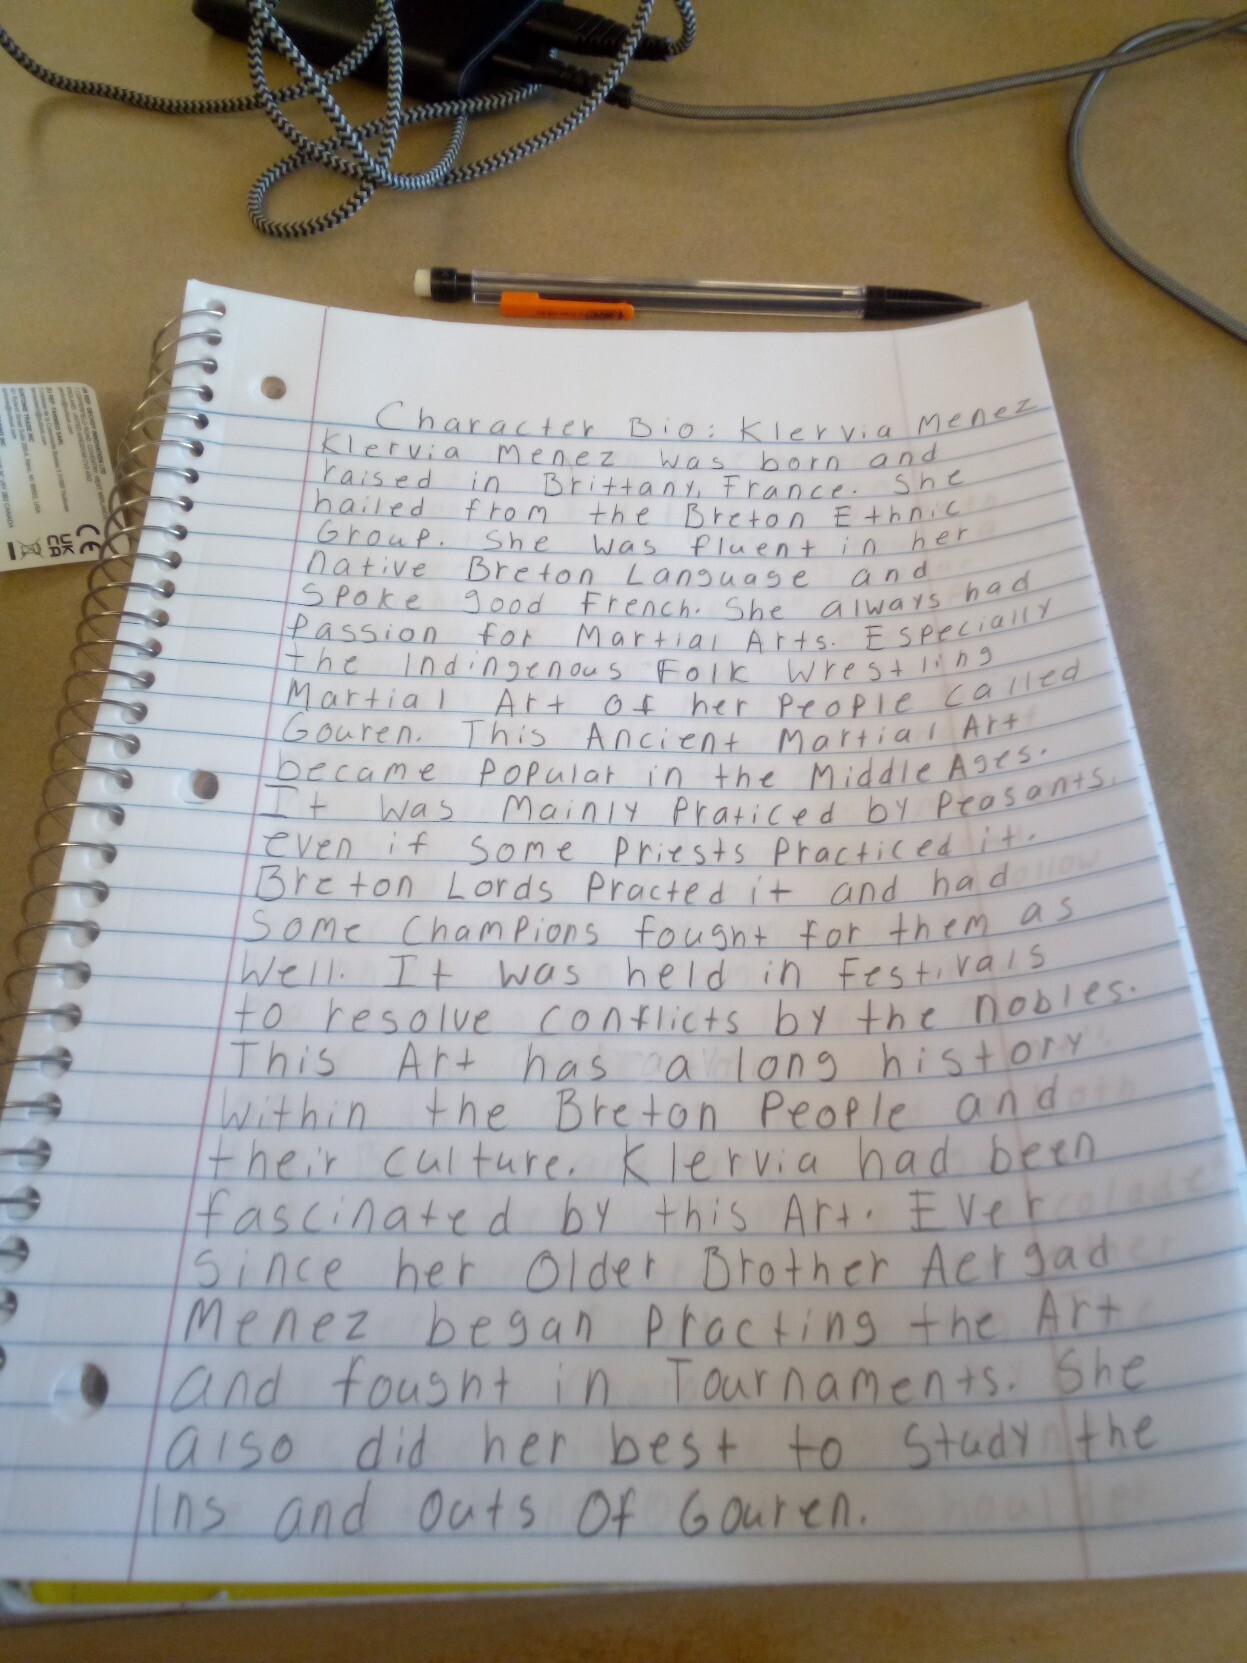 Character Bio: Klervia Menez
Klervia Menez was born and
raised in Brittany, France. She
hailed from the Breton Ethnic
Group. She was fluent in her
native Breton Language and
Spoke good French. She always had
Passion for Martial Arts. Especially
the Indingenous Folk Wrestling
Martial Art Of her People called
Gouren. This Ancient Martial Art
became Popular in the Middle Ages.
It was Mainly Praticed by Peasants,
even if some Priests Practiced it.
Breton Lords Practed it and had
Some Champions fought for them as
Well. It was held in Festivals
to resolve conflicts by the nobles.
This Art has a long history
Within the Breton People and
their culture. Klervia had been
fascinated by this Art. Ever
Since her Older Brother Aergad
Menez began Practing the Art
and fought in Tournaments. She
also did her best to Study the
Ins and Outs Of Gouren.
CE
UK
CA